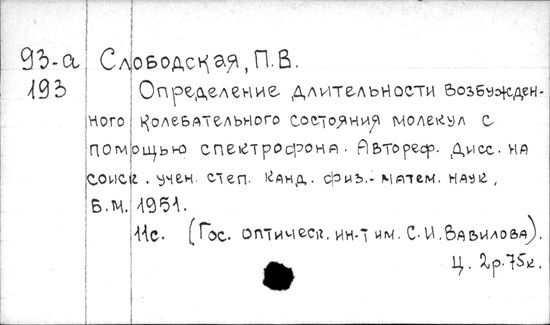 93-а Слободская, П.В.
193 Определение длительности возбужден-
ного колебательного состояния молекул с
помощью спектрофона. Автореф. дисс. на
соиск. учен. степ. канд. физ.-матем. наук,
Б.М. 1951.
11с. (Гос. оптическ. ин-т им. С.И. Вавилова).
Ц. 2р.75к.